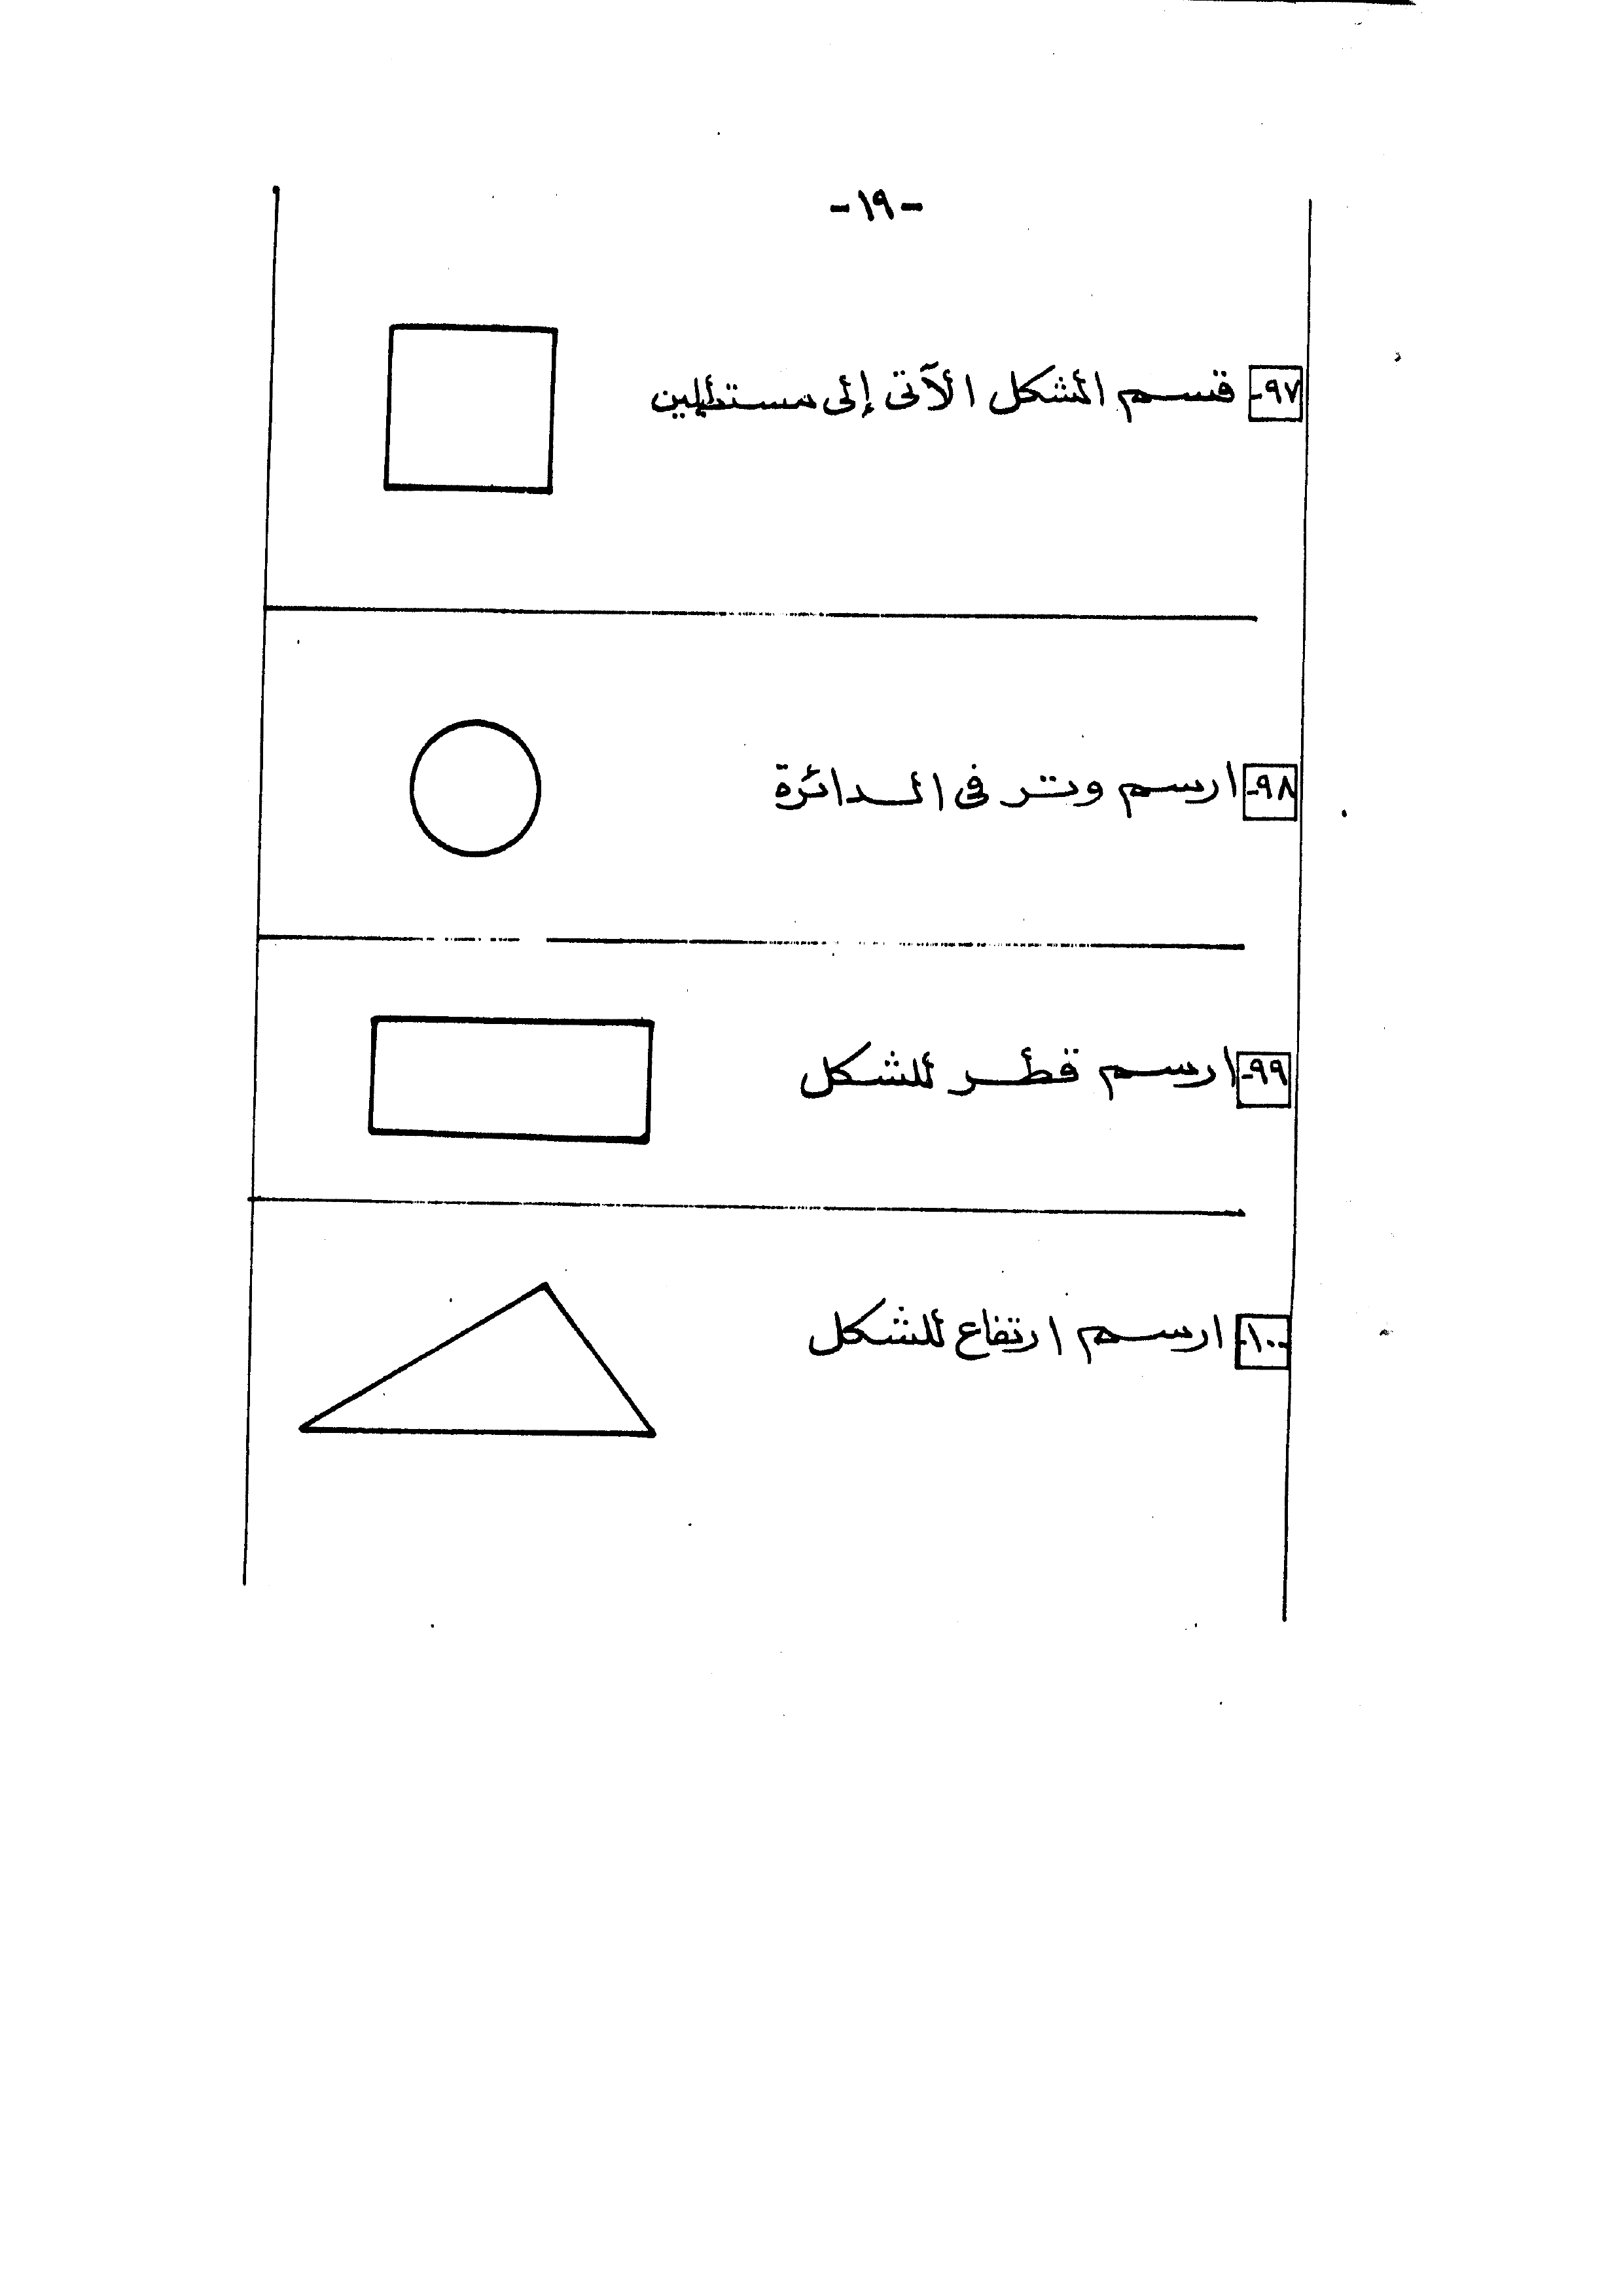 -١٩-
٩٧- قسم الشكل الآتى إلى مستطيلين
٩٨- ارسم وتر فى الدائرة
٩٩- ارسم قطر للشكل
١٠٠- ارسم ارتفاع للشكل